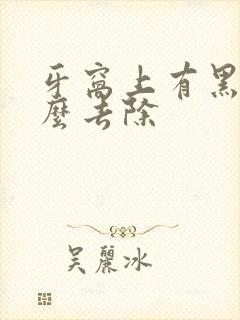 牙窩上有黑
麼去除
吳麗冰